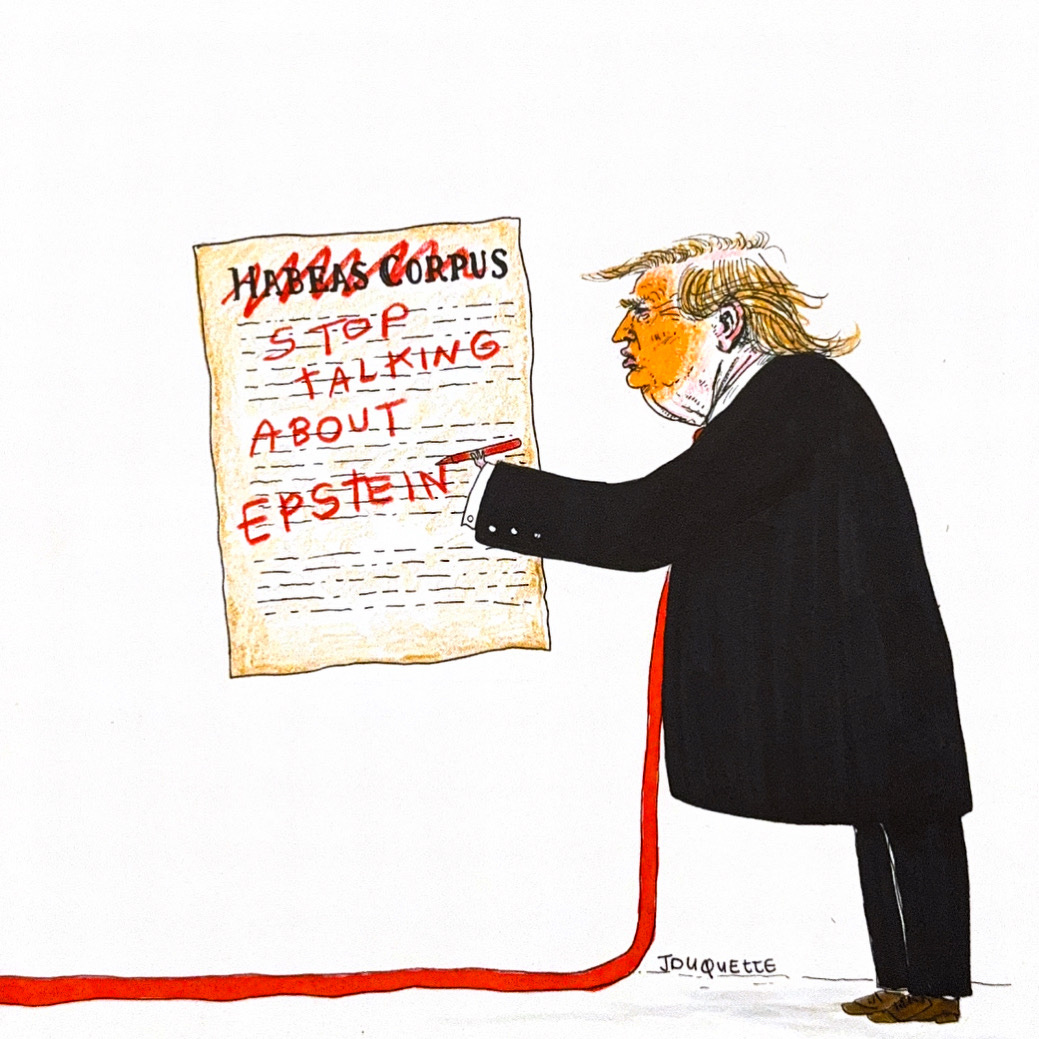 HABEAS CORPUS
STOP
TALKING
ABOUT
EPSTEIN
JDUQUETTE